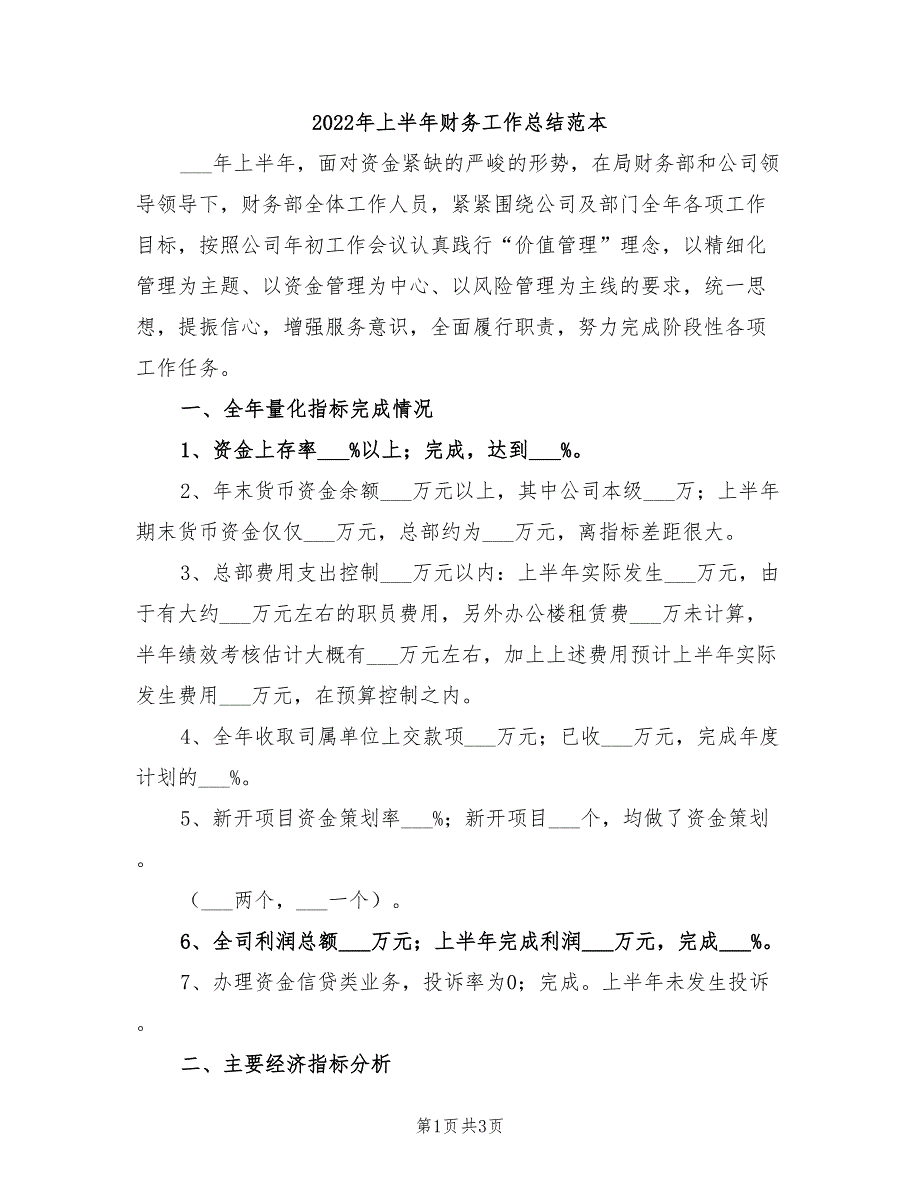 2022年上半年财务工作总结范本
___年上半年，面对资金紧缺的严峻的形势，在局财务部和公司领
导领导下，财务部全体工作人员，紧紧围绕公司及部门全年各项工作
目标，按照公司年初工作会议认真践行“价值管理”理念，以精细化
管理为主题、以资金管理为中心、以风险管理为主线的要求，统一思
想，提振信心，增强服务意识，全面履行职责，努力完成阶段性各项
工作任务。
一、全年量化指标完成情况
1、资金上存率___%以上；完成，达到___%。
2、年末货币资金余额___万元以上，其中公司本级___万；上半年
期末货币资金仅仅___万元，总部约为___万元，离指标差距很大。
3、总部费用支出控制___万元以内：上半年实际发生___万元，由
于有大约___万元左右的职员费用，另外办公楼租赁费___万未计算，
半年绩效考核估计大概有___万元左右，加上上述费用预计上半年实际
发生费用___万元，在预算控制之内。
4、全年收取司属单位上交款项___万元；已收___万元，完成年度
计划的___%。
5、新开项目资金策划率___%；新开项目___个，均做了资金策划
。
（___两个，___一个）。
6、全司利润总额___万元；上半年完成利润___万元，完成___%。
7、办理资金信贷类业务，投诉率为0；完成。上半年未发生投诉
。
二、主要经济指标分析
第1页共3页